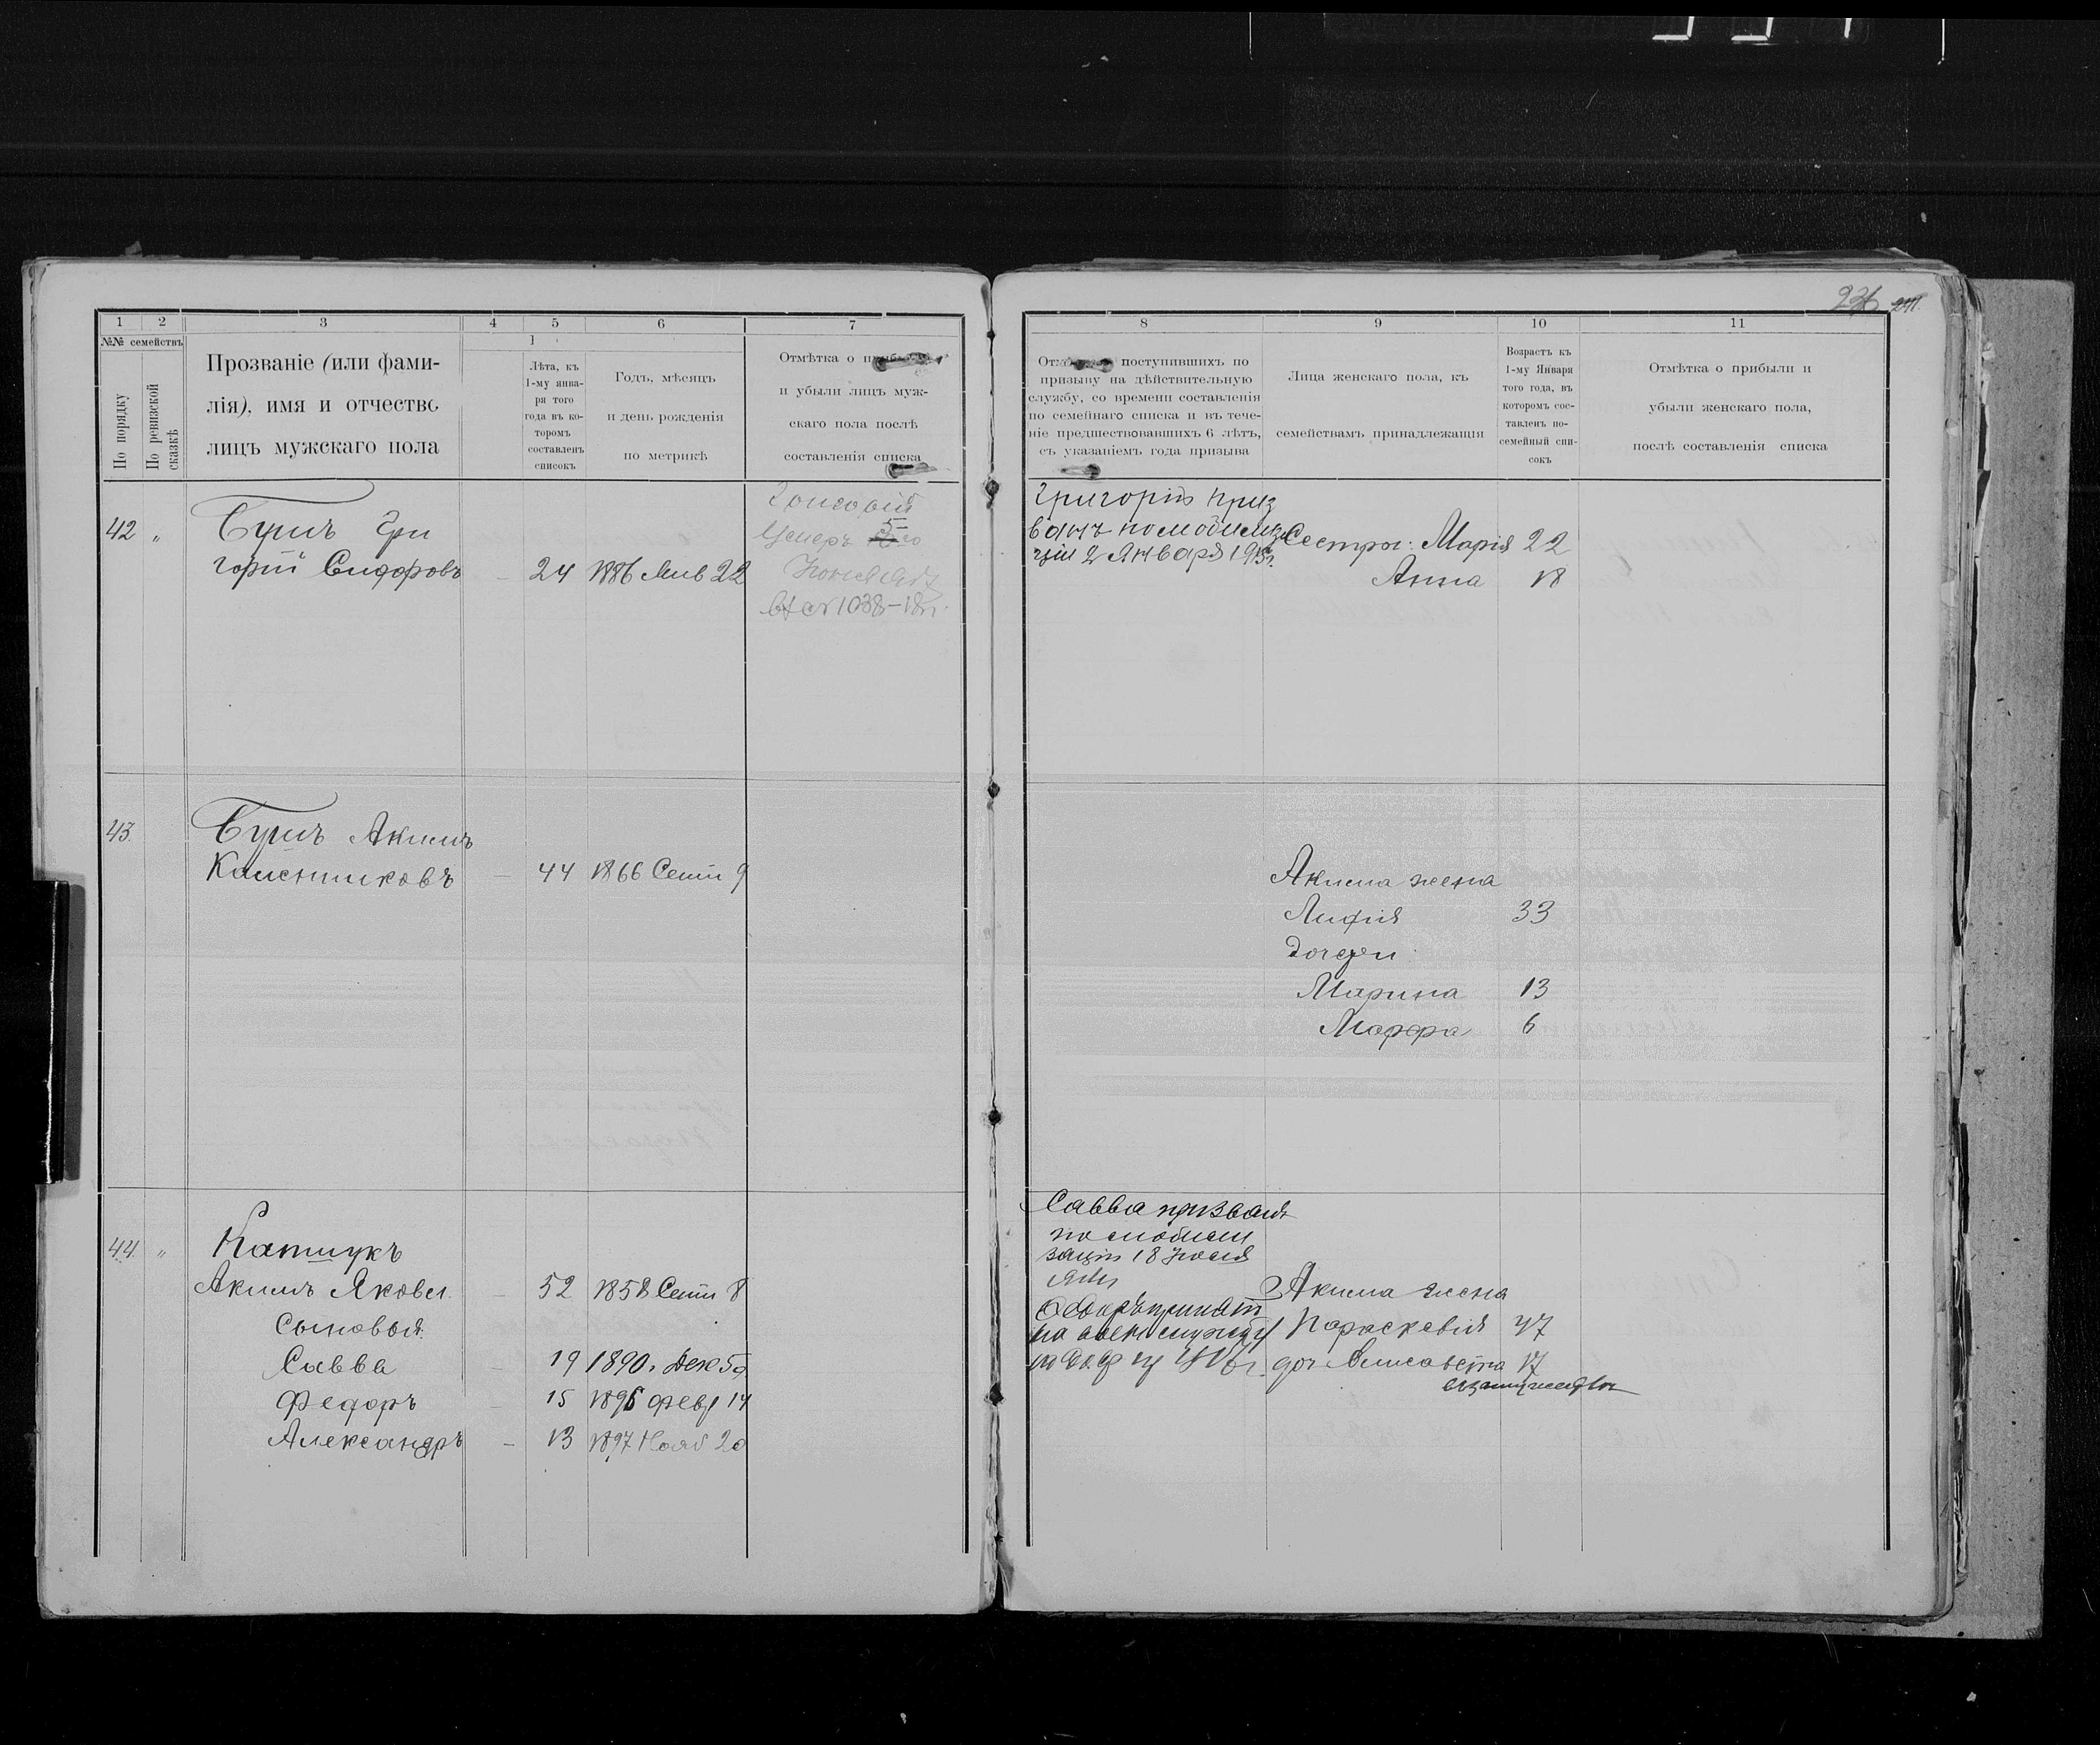 236 241
1 2 3 4 5 6 7
№№ семействъ
По порядку
По ревизской сказкѣ
Прозваніе (или фами-
лія), имя и отчество
лицъ мужскаго пола
Лѣта, къ
1-му янва-
ря того
года въ ко-
торомъ
составленъ
списокъ
Годъ, мѣсяцъ
и день рожденія
по метрикѣ
Отмѣтка о
и убыли лицъ муж-
скаго пола послѣ
составленія списка
42 „ Гри
горій Сидоровъ - 24 1886 Янв 22
Григорій
Умеръ 5
1038-18г.
43.
Акимъ
44 1866 Сент 9
44. „
Акимъ Яковл. - 52 1858 Сент 8
Сыновья:
Савва - 19 1890. Дек 5
Федоръ - 15 1895 Февр 14
Александръ - 13 1897 Нояб 20
8 9 10 11
поступившихъ по
призыву на дѣйствительную
службу, со времени составленія
по семейнаго списка и въ тече-
ніе предшествовавшихъ 6 лѣтъ,
съ указаніемъ года призыва
Лица женскаго пола, къ
семействамъ принадлежащія
Возрастъ къ
1-му Января
того года, въ
которомъ сос-
тавленъ по-
семейный спи-
сокъ
Отмѣтка о прибыли и
убыли женскаго пола,
послѣ составленія списка
Григорій приз
ванъ по мобилиза
ціи 2 Января 1915г.
Сестры: Марія 22
Анна 18
Акима жена
33
Дочери
Марина 13
Марфа 6
Савва призванъ
по мобили
заціи 18 Іюля
Федоръ принят
на воен службу
Акима жена
Параскевія 47
доч Елисавета 17
замужество